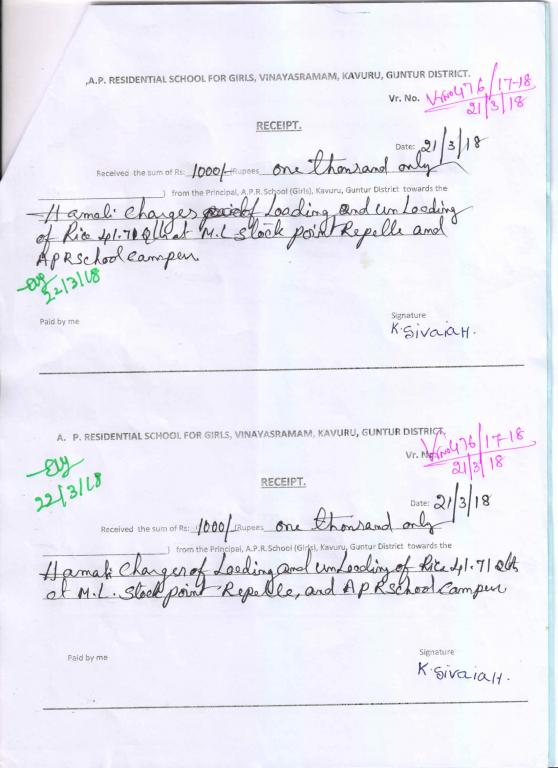 ,A.P. RESIDENTIAL SCHOOL FOR GIRLS, VINAYASRAMAM, KAVURU, GUNTUR DISTRICT.
Vr. No. VrNo476/17-18
21/3/18
RECEIPT.
Date: 21/3/18
Received the sum of Rs: 1000/- (Rupees one thousand only
) from the Principal, A.P.R.School (Girls), Kavuru, Guntur District towards the
Hamali charges of Loading and un Loading
of Rice 41.71 Qlls at M.L Stock point Repelle and
APRSchool campus
22/3/18
Paid by me
Signature
K. Sivaiah.
A. P. RESIDENTIAL SCHOOL FOR GIRLS, VINAYASRAMAM, KAVURU, GUNTUR DISTRICT.
Vr. No. VrNo476/17-18
21/3/18
22/3/18
RECEIPT.
Date: 21/3/18
Received the sum of Rs: 1000/- (Rupees one thousand only
) from the Principal, A.P.R.School (Girls), Kavuru, Guntur District towards the
Hamali charges of Loading and un Loading of Rice 41.71 Qlls
at M.L. Stock point Repelle, and APRSchool campus
Paid by me
Signature
K. Sivaiah.